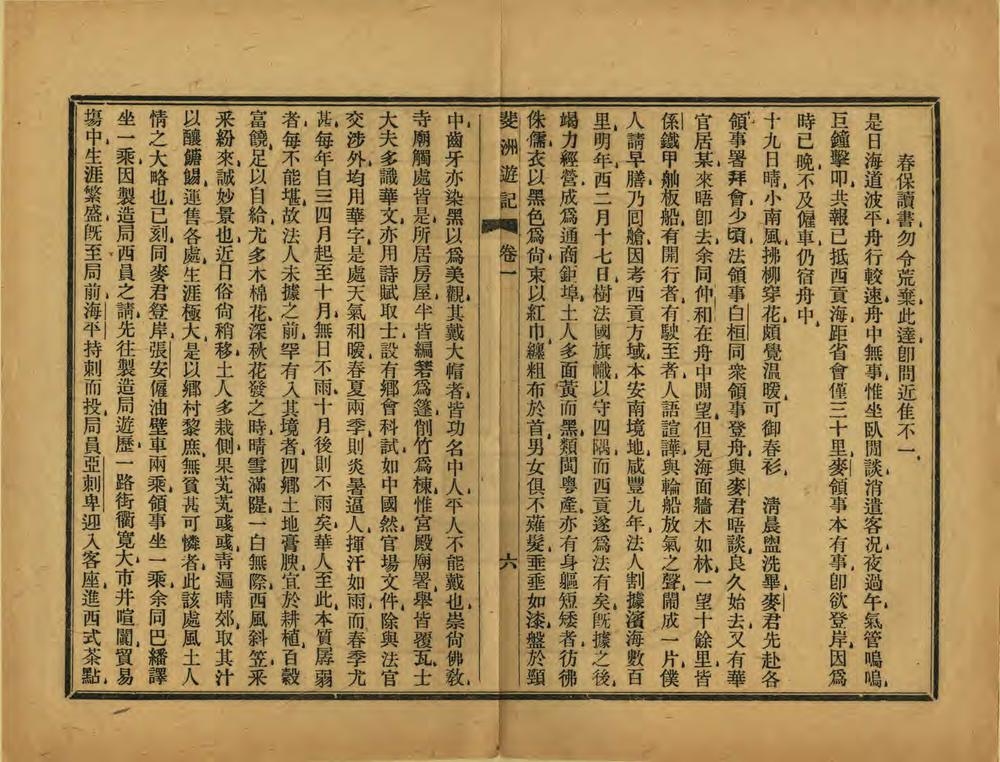 春保讀書、勿令荒棄、此達卽問近隹不一、
是日海道波平、舟行較速、舟中無事、惟坐臥閒談、消遣客況、夜過午、氣管鳴鳴、
巨鐘擊叩、共報已抵西貢海、距省會僅三十里、麥領事本有事卽欲登岸、因爲
時已晚、不及僱車、仍宿舟中、
十九日晴、小南風、拂柳穿花、頗覺温暖、可御春衫、 淸晨盥洗畢、麥君先赴各
領事署拜會、少頃、法領事白桓同衆領事登舟、與麥君晤談良久始去、又有華
官居某、來晤卽去、余同仲和在舟中閒望、但見海面牆木如林、一望十餘里、皆
係鐵甲舢板船、有開行者、有駛至者、人語諠譁、與輪船放氣之聲、鬧成一片、僕
人請早膳、乃囘艙、因考西貢方域、本安南境地、咸豐九年、法人割據濱海數百
里、明年、西二月十七日、樹法國旗幟、以守四隅、而西貢遂爲法有矣、旣據之後、
竭力經營、成爲通商鉅埠、土人多面黃而黑、類閩粵產、亦有身軀短矮者、彷彿
侏儒、衣以黑色爲尙、束以紅巾、纏粗布於首、男女俱不薙髮、垂垂如漆、盤於頸
斐洲遊記 卷一 六
中、齒牙亦染黑以爲美觀、其戴大帽者、皆功名中人、平人不能戴也、崇尙佛敎、
寺廟觸處皆是、所居房屋、半皆編茅爲篷、削竹爲棟、惟宮殿廟署、舉皆覆瓦、士
大夫多識華文、亦用詩賦取士、設有鄉會科試、如中國然、官場文件、除與法官
交涉外、均用華字、是處天氣和暖、春夏兩季、則炎暑逼人、揮汗如雨、而春季尤
甚、每年自三四月起、至十月、無日不雨、十月後則不雨矣、華人至此、本質孱弱
者、每不能堪、故法人未據之前、罕有入其境者、四鄉土地膏腴、宜於耕植、百穀
富饒、足以自給、尤多木棉花、深秋花發之時、晴雪滿隄、一白無際、西風斜笠、釆
釆紛來、誠妙景也、近日俗尙稍移、土人多栽側果、芃芃彧彧、靑遍晴郊、取其汁
以釀餹餳、連售各處、生涯極大、是以鄉村黎庶、無貧甚可憐者、此該處風土人
情之大略也、已刻、同麥君登岸、張安僱油壁車兩乘、領事坐一乘、余同巴繙譯
坐一乘、因製造局西員之請、先往製造局遊歷、一路街衢寛大、市井喧闐、貿易
塲中、生涯繁盛、旣至局前、海平持刺而投、局員亞刺卑迎入客座、進西式茶點、